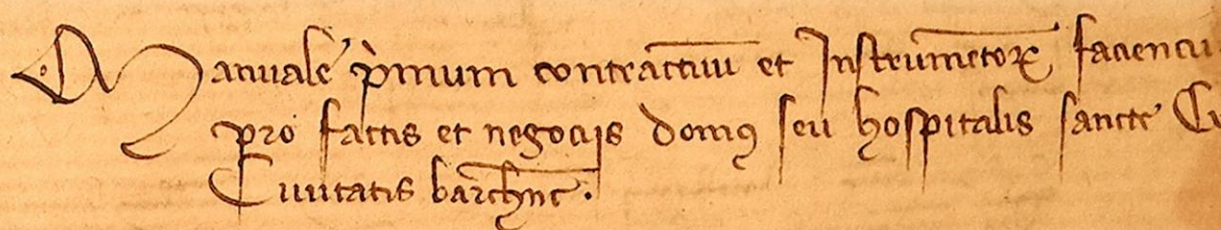 Manuale p̀mum contractuū et Instrum̄etoꝝ faciencu
pro factis et negocijs domꝰ seu hospitalis sancte Cu
Civitatis barc̄hn̄e.